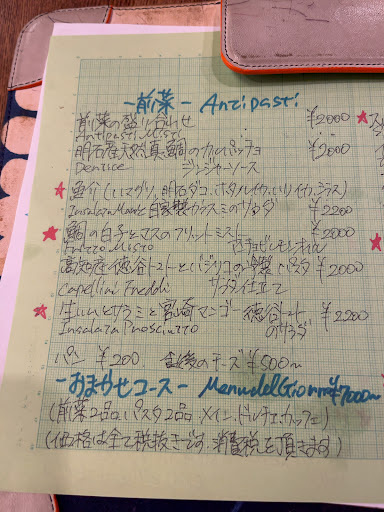 -前菜- Antipasti
前菜の盛り合わせ ¥2000
Antipasti Misti
明石産天然真鯛のカルパッチョ ¥2000
Dentice ジンジャーソース
★魚介(ハマグリ、明石ダコ、ホタルイカ、ヤリイカ、シラス)
Insalata Mare と自家製カラスミのサラダ ¥2200
★鯛の白子とマスのフリットミスト ¥2000
Fritto Misto アンチョビレモンオイル
高知産徳谷トマトとバジリコの冷製パスタ ¥2000
Capellini Freddi サラダ仕立て
★生ハムとサラミと宮崎マンゴー徳谷トマト ¥2200
Insalata Prosciutto のサラダ
パン ¥200 食後のチーズ ¥500〜
-おまかせコース- Menu del Giorno ¥7000〜
(前菜2品、パスタ2品、メイン、ドルチェ、カッフェ)
(価格は全て税抜きです 消費税を頂きます)